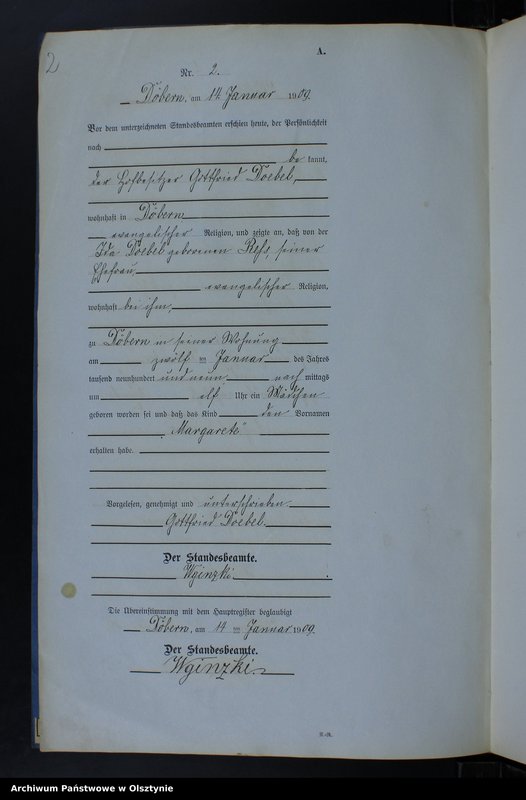 2
A.
Nr. 2.
Döbern, am 14 Januar 1909.
Vor dem unterzeichneten Standesbeamten erschien heute, der Persönlichkeit
nach
be kannt,
der Hofbesitzer Gottfried Doebel,
wohnhaft in Döbern
evangelischer Religion, und zeigte an, daß von der
Ida Doebel geborenen seiner
Ehefrau,
evangelischer Religion,
wohnhaft bei ihm,
zu Döbern in seiner Wohnung
am zwölf ten Januar des Jahres
tausend neunhundert und neun nach mittags
um elf Uhr ein Mädchen
geboren worden sei und daß das Kind den Vornamen
„Margarete“
erhalten habe.
Vorgelesen, genehmigt und unterschrieben
Gottfried Doebel.
Der Standesbeamte.
Wginzki.
Die Übereinstimmung mit dem Hauptregister beglaubigt
Döbern, am 14 ten Januar 1909.
Der Standesbeamte.
Wginzki.
Archiwum Państwowe w Olsztynie